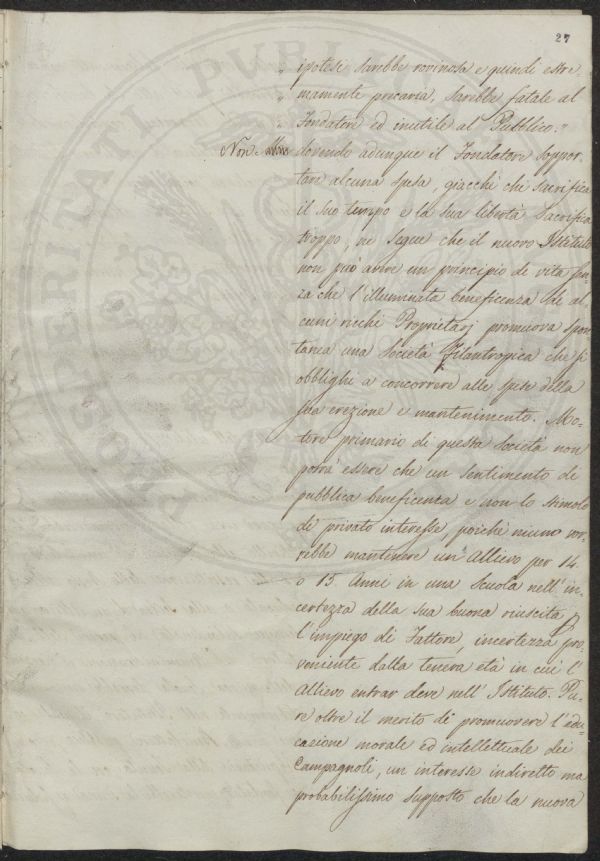 27
„ ipotesi sarebbe rovinosa e quindi estre-
„ mamente precaria, sarebbe fatale al
„ Fondatore ed inutile al Pubblico."
Non dovendo adunque il Fondatore soppor-
tare alcuna spesa, giacchè chi sacrifica
il suo tempo e la sua libertà sacrifica
troppo, ne segue che il nuovo Istituto
non può avere un principio di vita sen-
za che l'illuminata beneficenza di al-
cuni ricchi Proprietarj promuova spon-
tanea una Società Filantropica che si
obblighi a concorrere alle spese della
sua erezione e mantenimento. Mo-
tore primario di questa Società non
potrà essere che un sentimento di
pubblica beneficenza e non lo stimolo
di privato interesse, poichè niuno vor-
rebbe mantenere un Allievo per 14.
o 15. Anni in una Scuola nell'in-
certezza della sua buona riuscita
l'impiego di Fattore, incertezza pro-
veniente dalla tenera età in cui l'
Allievo entrar deve nell'Istituto. Pu-
re oltre il merito di promuovere l'edu-
cazione morale ed intellettuale dei
Campagnoli, un interesse indiretto ma
probabilissimo supposto che la nuova
PROSPERITATI PUBLI